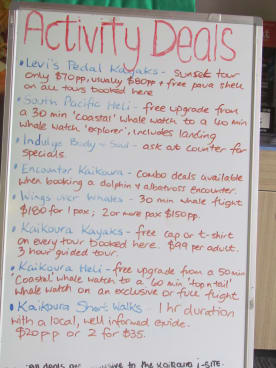 Activity Deals
• Levi's Pedal Kayaks - sunset tour
only $70pp, usually $80pp + free paua shell
on all tours booked here
• South Pacific Heli - free upgrade from
a 30 min 'coastal' whale watch to a 40 min
whale watch 'explorer', includes landing
• Indulge Body + Soul - ask at counter for
specials.
• Encounter Kaikoura - combo deals available
when booking a dolphin + albatross encounter.
• Wings over Whales - 30 min whale flight
$180 for 1 pax; 2 or more pax $150pp.
• Kaikoura Kayaks - free cap or t-shirt
on every tour booked here. $99 per adult.
3 hour guided tour.
• Kaikoura Heli - free upgrade from a 50 min
'Coastal' whale watch to a '60 min 'top n tail'
whale watch on an exclusive or full flight.
• Kaikoura Short Walks - 1 hr duration
with a local, well informed guide.
$20pp or 2 for $35.
All deals are exclusive to the Kaikoura i-SITE.